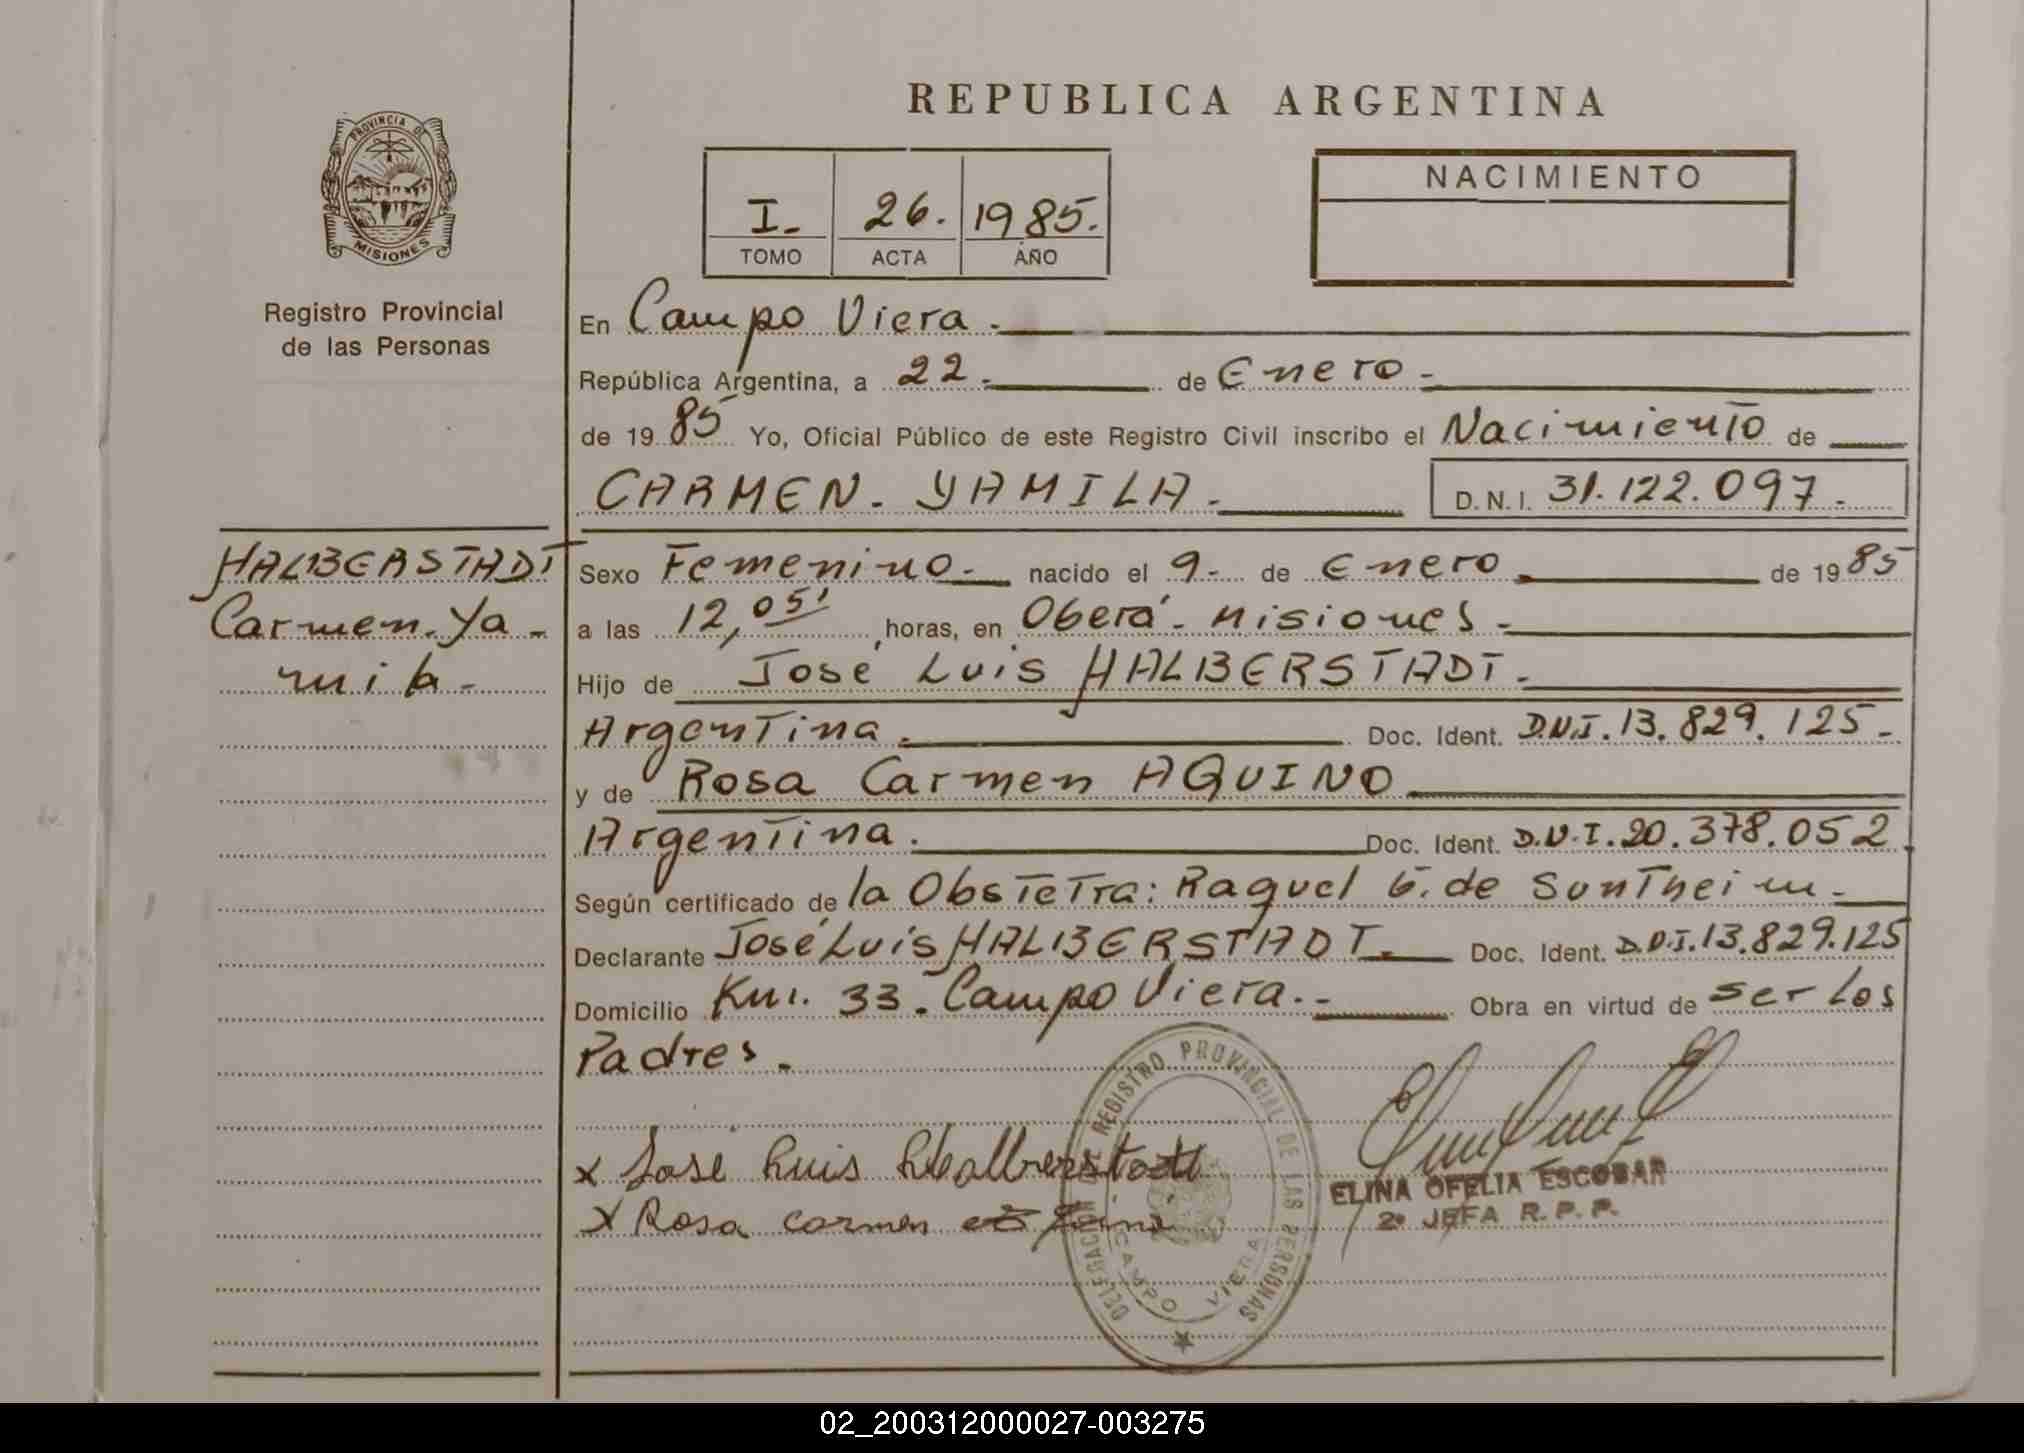 REPUBLICA ARGENTINA
PROVINCIA DE
MISIONES
Registro Provincial
de las Personas
I.- 26. 1985.
TOMO ACTA AÑO
NACIMIENTO
En Campo Viera.-
República Argentina, a 22.- de Enero.-
de 1985 Yo, Oficial Público de este Registro Civil inscribo el Nacimiento de
CARMEN. YAMILA.- D.N.I. 31.122.097.-
HALBERSTADT
Carmen. Ya-
mila.-
Sexo Femenino.- nacido el 9.- de Enero.- de 1985
a las 12,05' horas, en Oberá- Misiones.-
Hijo de José Luis HALBERSTADT.-
Argentina.- Doc. Ident. D.N.I. 13.829.125.-
y de Rosa Carmen AQUINO
Argentina.- Doc. Ident. D.N.I. 20.378.052.
Según certificado de la Obstetra: Raquel G. de Suntheim.-
Declarante José Luis HALBERSTADT.- Doc. Ident. D.N.I. 13.829.125
Domicilio Km. 33. Campo Viera.- Obra en virtud de ser los
Padres.-
x José Luis Halberstadt
x Rosa Carmen
DELEGACION DE REGISTRO PROVINCIAL DE LAS PERSONAS
CAMPO VIERA
ELINA OFELIA ESCOBAR
2º JEFA R. P. P.
02_200312000027-003275